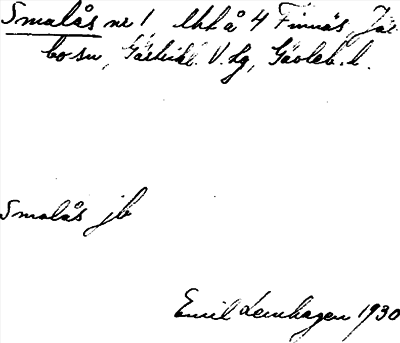 Smalås nr 1, lht å 4 Finnäs, Jär
bo sn, Gästrikl. V. tg, Gävleb. l.
Smalås jb
Emil Lemhagen 1930